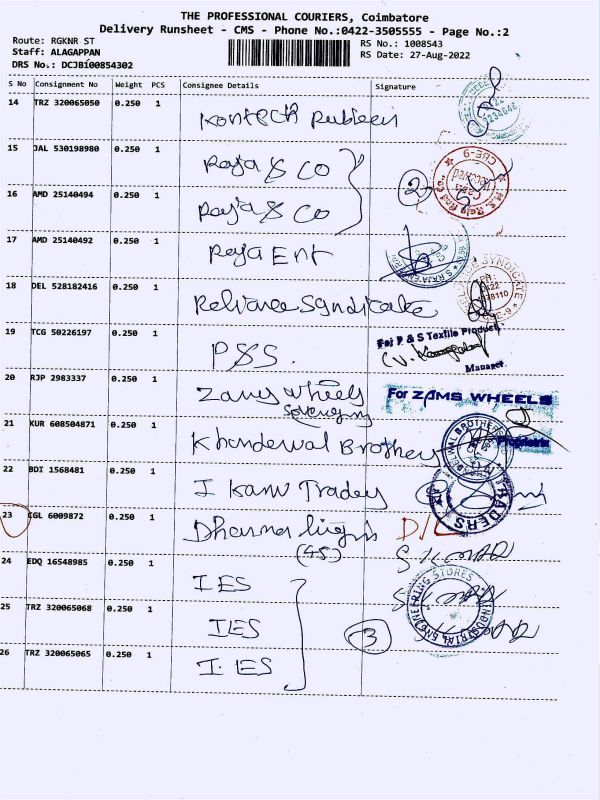 THE PROFESSIONAL COURIERS, Coimbatore
Delivery Runsheet - CMS - Phone No.:0422-3505555 - Page No.:2
Route: RGKNR ST RS No.: 1008543
Staff: ALAGAPPAN RS Date: 27-Aug-2022
DRS No.: DCJB100854302
S No Consignment No Weight PCS Consignee Details Signature
14 TRZ 320065050 0.250 1 Kontech
15 JAL 530198980 0.250 1 Raja & CO
CBE-9
16 AMD 25140494 0.250 1 Raja & CO 2
17 AMD 25140492 0.250 1 Raja Ent
18 DEL 528182416 0.250 1 Reliance Syndicate
SYNDICATE
19 TCG 50226197 0.250 1 P&S.
For P & S Textile Product
Manager
20 RJP 2983337 0.250 1 Zams Wheels
For ZAMS WHEELS
21 KUR 608504871 0.250 1 Khandewal Brothers
Proprietrix
22 BDI 1568481 0.250 1 Kanu Trades
TRADERS
23 CGL 6009872 0.250 1 Dharma D/L
(45)
24 EDQ 16548985 0.250 1 IES
INDUSTRIAL ENGINEERING STORES
25 TRZ 320065068 0.250 1 IES
3
26 TRZ 320065065 0.250 1 I. ES